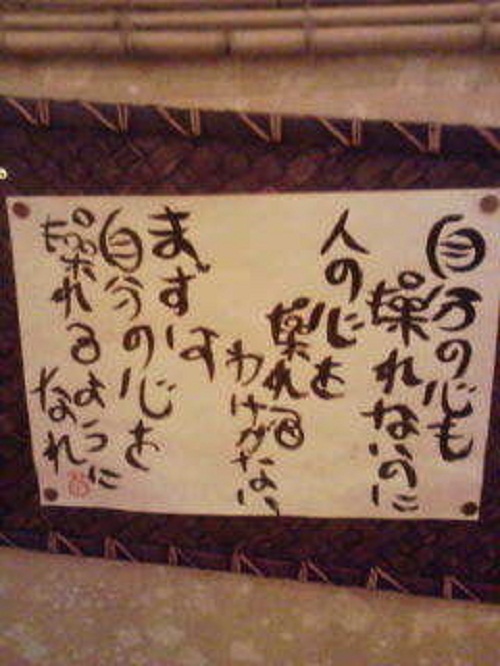 自分の心も
操れないのに
人の心を
操れる
わけがない
まずは
自分の心を
操れるように
なれ